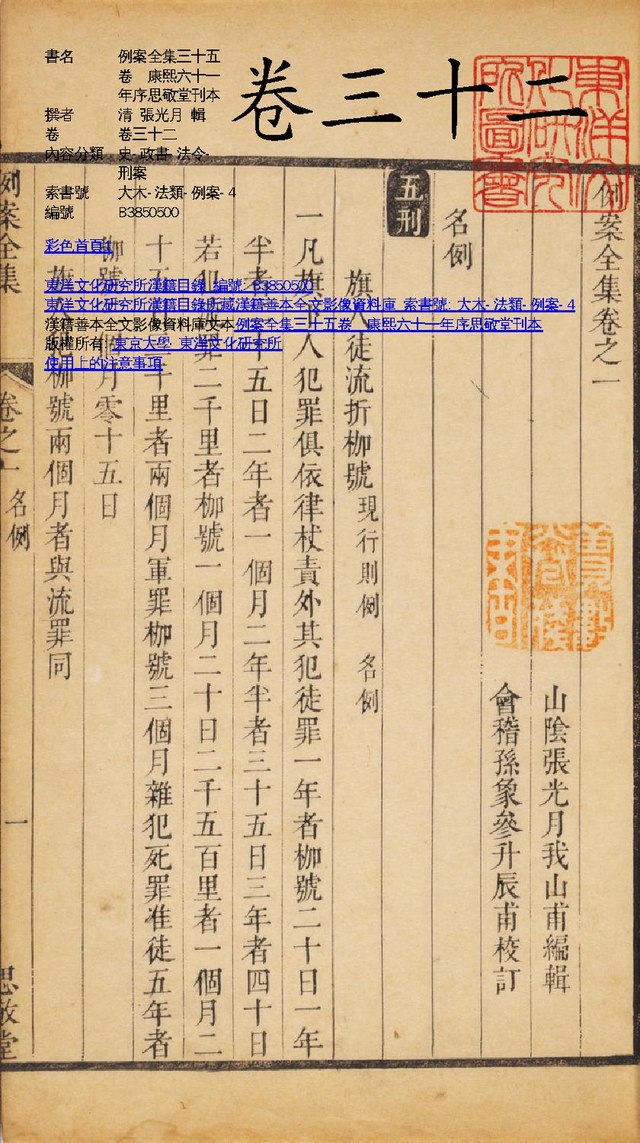 書名 例案全集三十五
卷 康熙六十一
年序思敬堂刊本
撰者 清 張光月 輯
卷 卷三十二
內容分類 史-政書-法令-
刑案
索書號 大木-法類-例案-4
編號 B3850500
彩色首頁1
東洋文化研究所漢籍目錄 編號: B3850500
東洋文化研究所漢籍目錄所藏漢籍善本全文影像資料庫 索書號: 大木-法類-例案-4
漢籍善本全文影像資料庫文本例案全集三十五卷 康熙六十一年序思敬堂刊本
版權所有: 東京大學 東洋文化研究所
使用上的注意事項
卷三十二
例案全集卷之一
山陰張光月我山甫編輯
會稽孫象參升辰甫校訂
名例
五刑
旗人徒流折枷號 現行則例 名例
一凡旗下人犯罪俱依律杖責外其犯徒罪一年者枷號二十日一年
半者二十五日二年者一個月二年半者三十五日三年者四十日
若犯流罪二千里者枷號一個月二十日二千五百里者一個月二
十五日三千里者兩個月軍罪枷號三個月雜犯死罪准徒五年者
枷號三個月零十五日
旗人犯枷號兩個月者與流罪同
例案全集
卷之一
名例
一
思敬堂